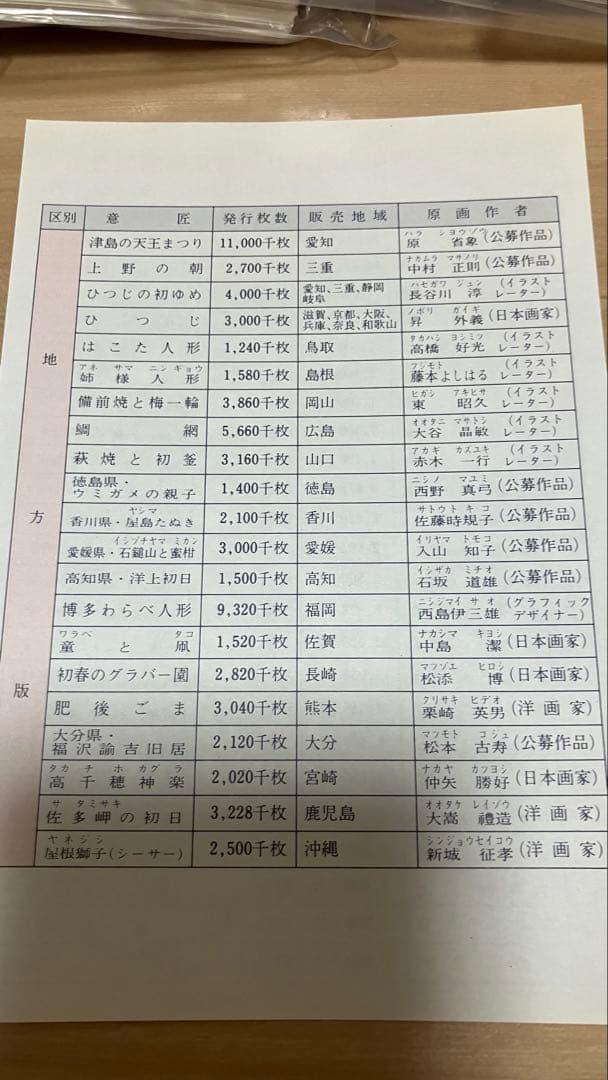 区別 意匠 発行枚数 販売地域 原画作者
地方版
津島の天王まつり 11,000千枚 愛知 原 省象(公募作品)
ハラ シヨウゾウ
上野の朝 2,700千枚 三重 中村 正則(公募作品)
ナカムラ マサノリ
ひつじの初ゆめ 4,000千枚 愛知、三重、静岡 岐阜 長谷川 淳(イラストレーター)
ハセガワ ジュン
ひつじ 3,000千枚 滋賀、京都、大阪、兵庫、奈良、和歌山 昇 外義(日本画家)
ノボリ ガイギ
はこた人形 1,240千枚 鳥取 高橋 好光(イラストレーター)
タカハシ ヨシミツ
アネ サマ ニン ギョウ
姉様人形 1,580千枚 島根 藤本よしはる(イラストレーター)
フジモト
備前焼と梅一輪 3,860千枚 岡山 東 昭久(イラストレーター)
ヒガシ アキヒサ
鯛網 5,660千枚 広島 大谷 晶敏(イラストレーター)
オオタニ マサトシ
萩焼と初釜 3,160千枚 山口 赤木 一行(イラストレーター)
アカギ カズユキ
徳島県・ウミガメの親子 1,400千枚 徳島 西野 真弓(公募作品)
ニシノ マユミ
ヤシマ
香川県・屋島たぬき 2,100千枚 香川 佐藤時規子(公募作品)
サトウトキコ
イシヅチヤマ ミカン
愛媛県・石鎚山と蜜柑 3,000千枚 愛媛 入山 知子(公募作品)
イリヤマ トモコ
高知県・洋上初日 1,500千枚 高知 石坂 道雄(公募作品)
イシザカ ミチオ
博多わらべ人形 9,320千枚 福岡 西島伊三雄(グラフィックデザイナー)
ニシジマイサオ
ワラベ タコ
童と凧 1,520千枚 佐賀 中島 潔(日本画家)
ナカシマ キヨシ
初春のグラバー園 2,820千枚 長崎 松添 博(日本画家)
マツゾエ ヒロシ
肥後ごま 3,040千枚 熊本 栗崎 英男(洋画家)
クリサキ ヒデオ
大分県・福沢諭吉旧居 2,120千枚 大分 松本 古寿(公募作品)
マツモト コジュ
タカ チ ホ カグラ
高千穂神楽 2,020千枚 宮崎 仲矢 勝好(日本画家)
ナカヤ カツヨシ
サ タミサキ
佐多岬の初日 3,228千枚 鹿児島 大嵩 禮造(洋画家)
オオタケ レイゾウ
ヤネジシ
屋根獅子(シーサー) 2,500千枚 沖縄 新城 征孝(洋画家)
シンジョウセイコウ